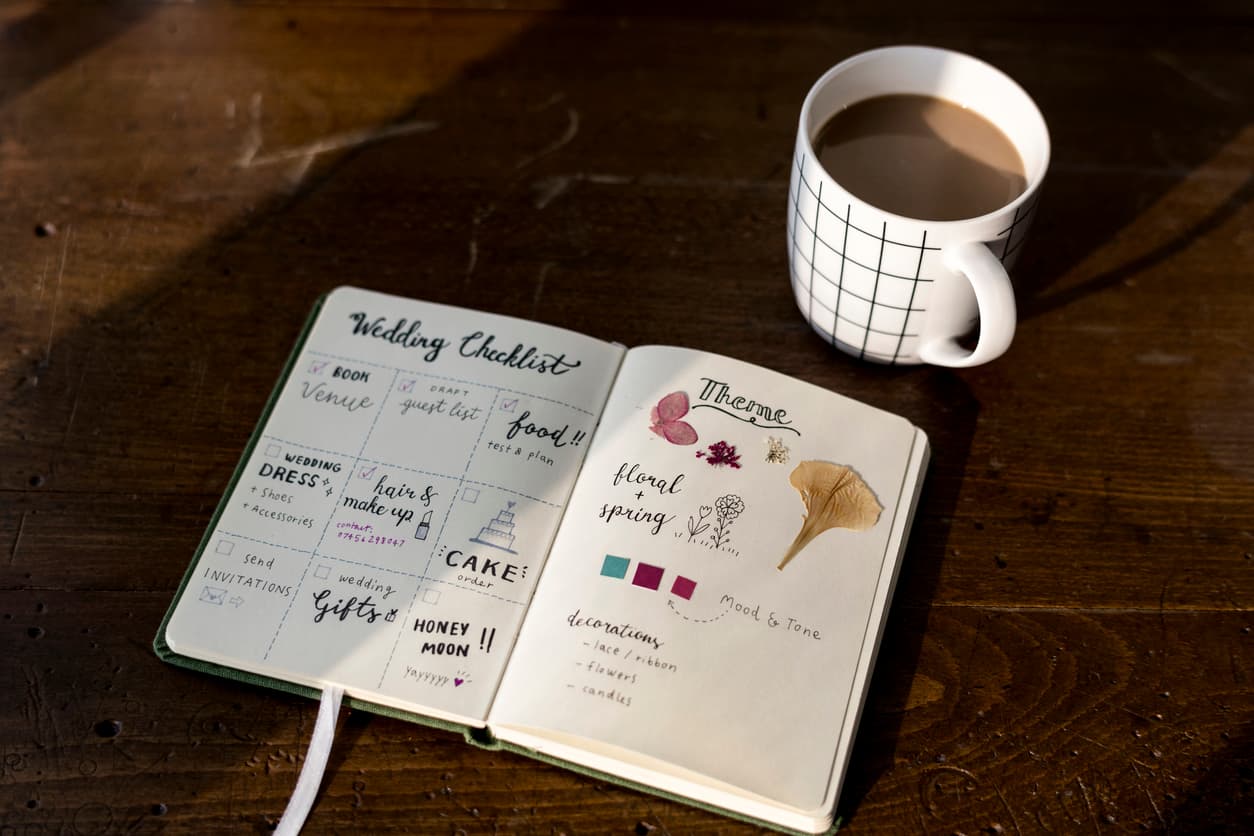 Wedding Checklist
BOOK
Venue
DRAFT
guest list
food!!
test & plan
WEDDING
DRESS
+ Shoes
+ Accessories
hair &
make up
contact:
07456298047
CAKE
order
send
INVITATIONS
wedding
Gifts
HONEY
MOON !!
Yayyyyy
Theme
floral
+
spring
Mood & Tone
decorations
- lace / ribbon
- flowers
- candles